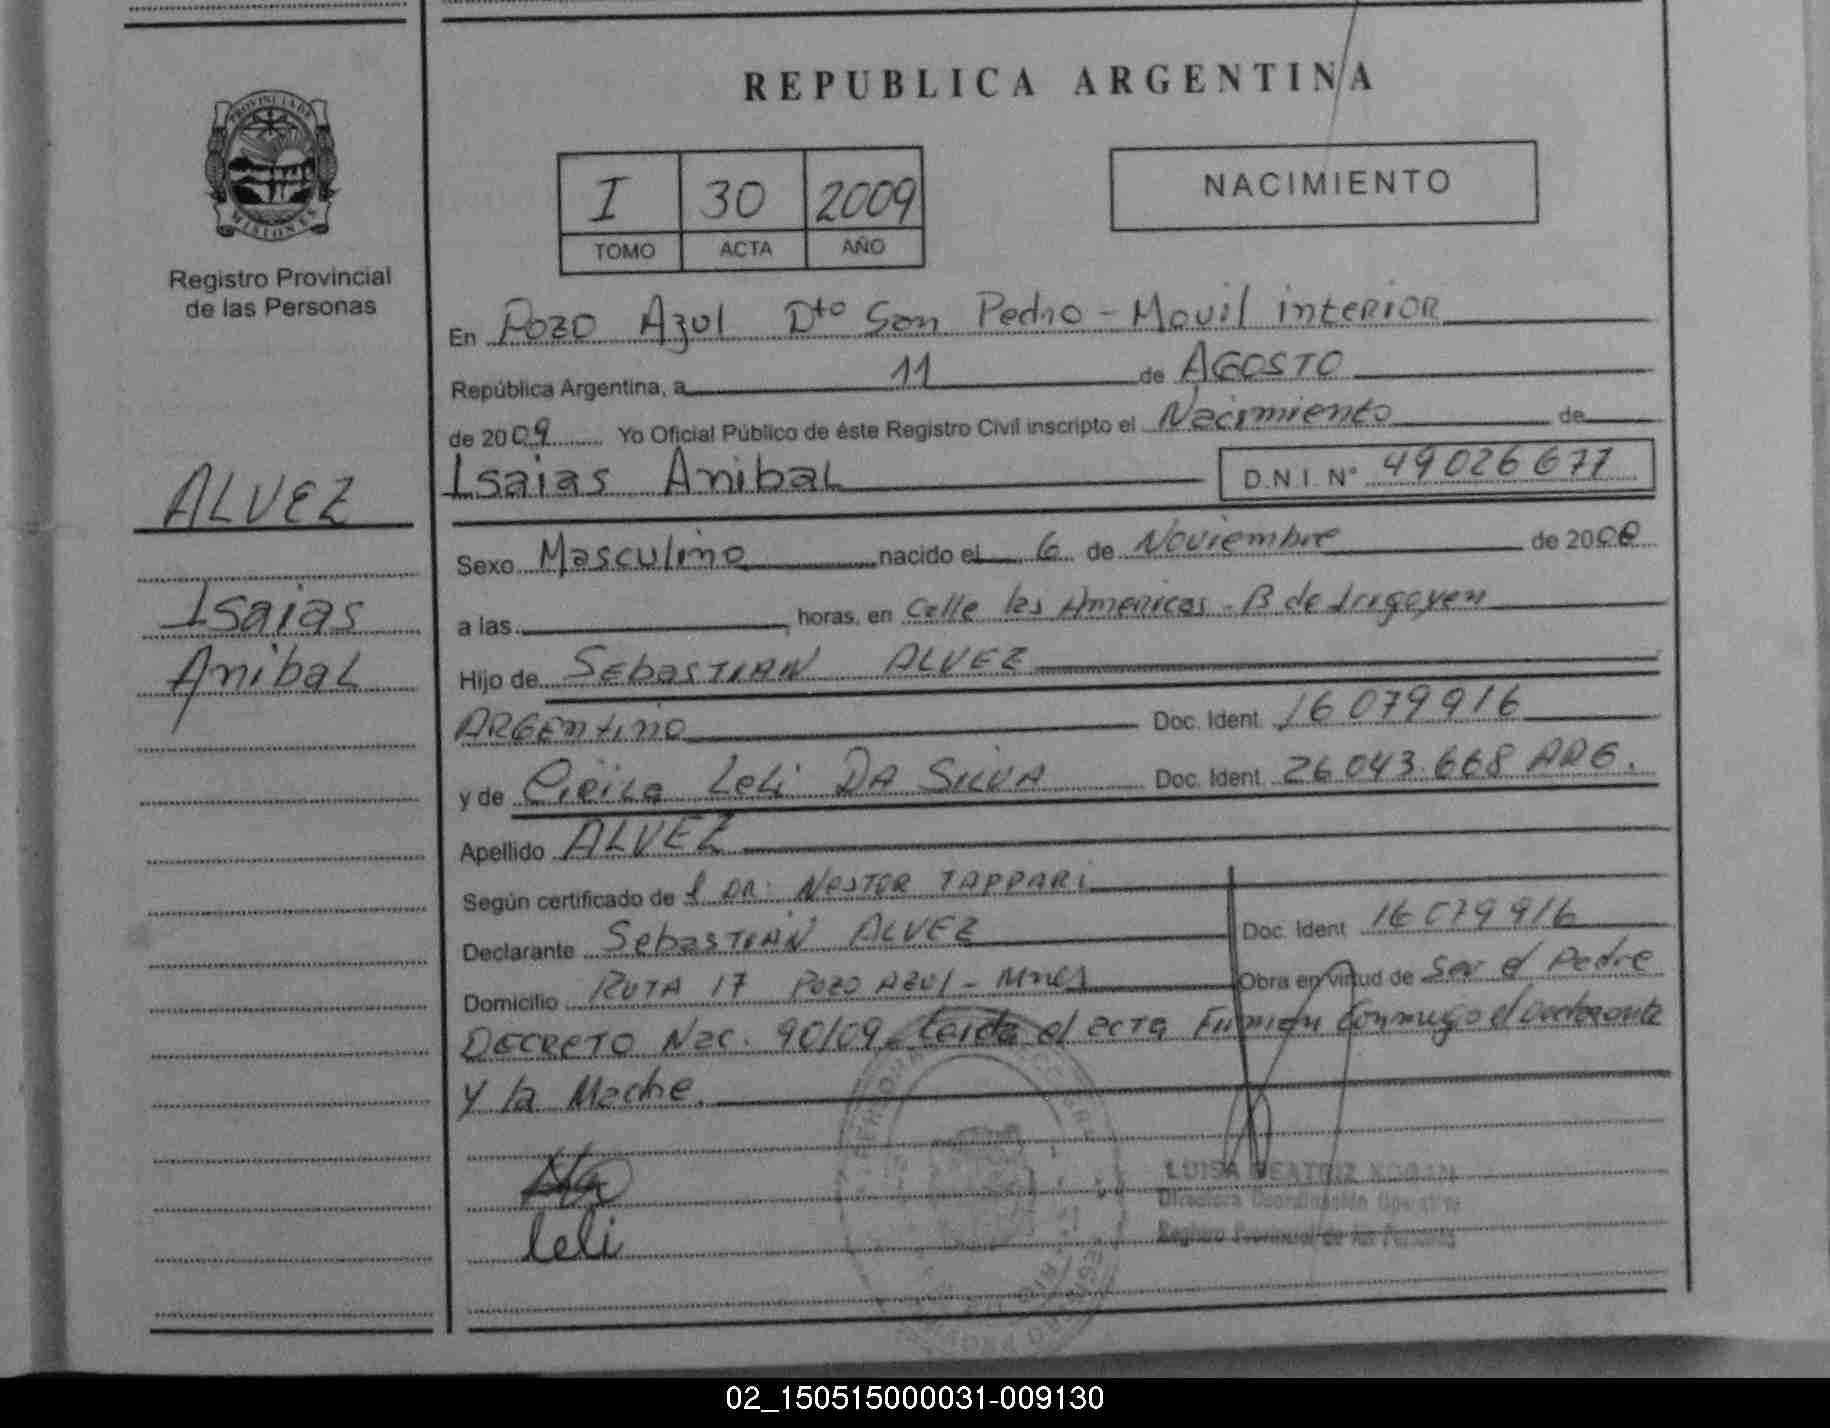 PROVINCIA DE
MISIONES
Registro Provincial
de las Personas
ALVEZ
Isaias
Anibal
REPUBLICA ARGENTINA
I 30 2009
TOMO ACTA AÑO
NACIMIENTO
En Pozo Azul Dto San Pedro - Movil interior
República Argentina, a 11 de AGOSTO
de 2009 Yo Oficial Público de éste Registro Civil inscripto el Nacimiento de
Isaias Anibal D.N.I. N° 49026677
Sexo Masculino nacido el 6 de Noviembre de 200
a las horas, en Calle las Americas - B de Irigoyen
Hijo de SEbasTIAN ALVEZ
ARGENtino Doc. Ident. 16 079 916
y de Leli DA SILVA Doc. Ident. 26 043.668 ARG.
Apellido ALVEZ
Según certificado de l DR. NESTOR TAPPARI
Declarante SebasTIAN ALVEZ Doc. Ident 16 079 916
Domicilio RUTA 17 POZO AZUL - Mnes Obra en virtud de Ser el Padre
DECRETO Nac. 90/09 Leida el acta Firman conmigo el Declarante
y la Madre.
leli
LUISA BEATRIZ KOGAN
Directora Coordinación
Registro Provincial de las Personas
02_150515000031-009130